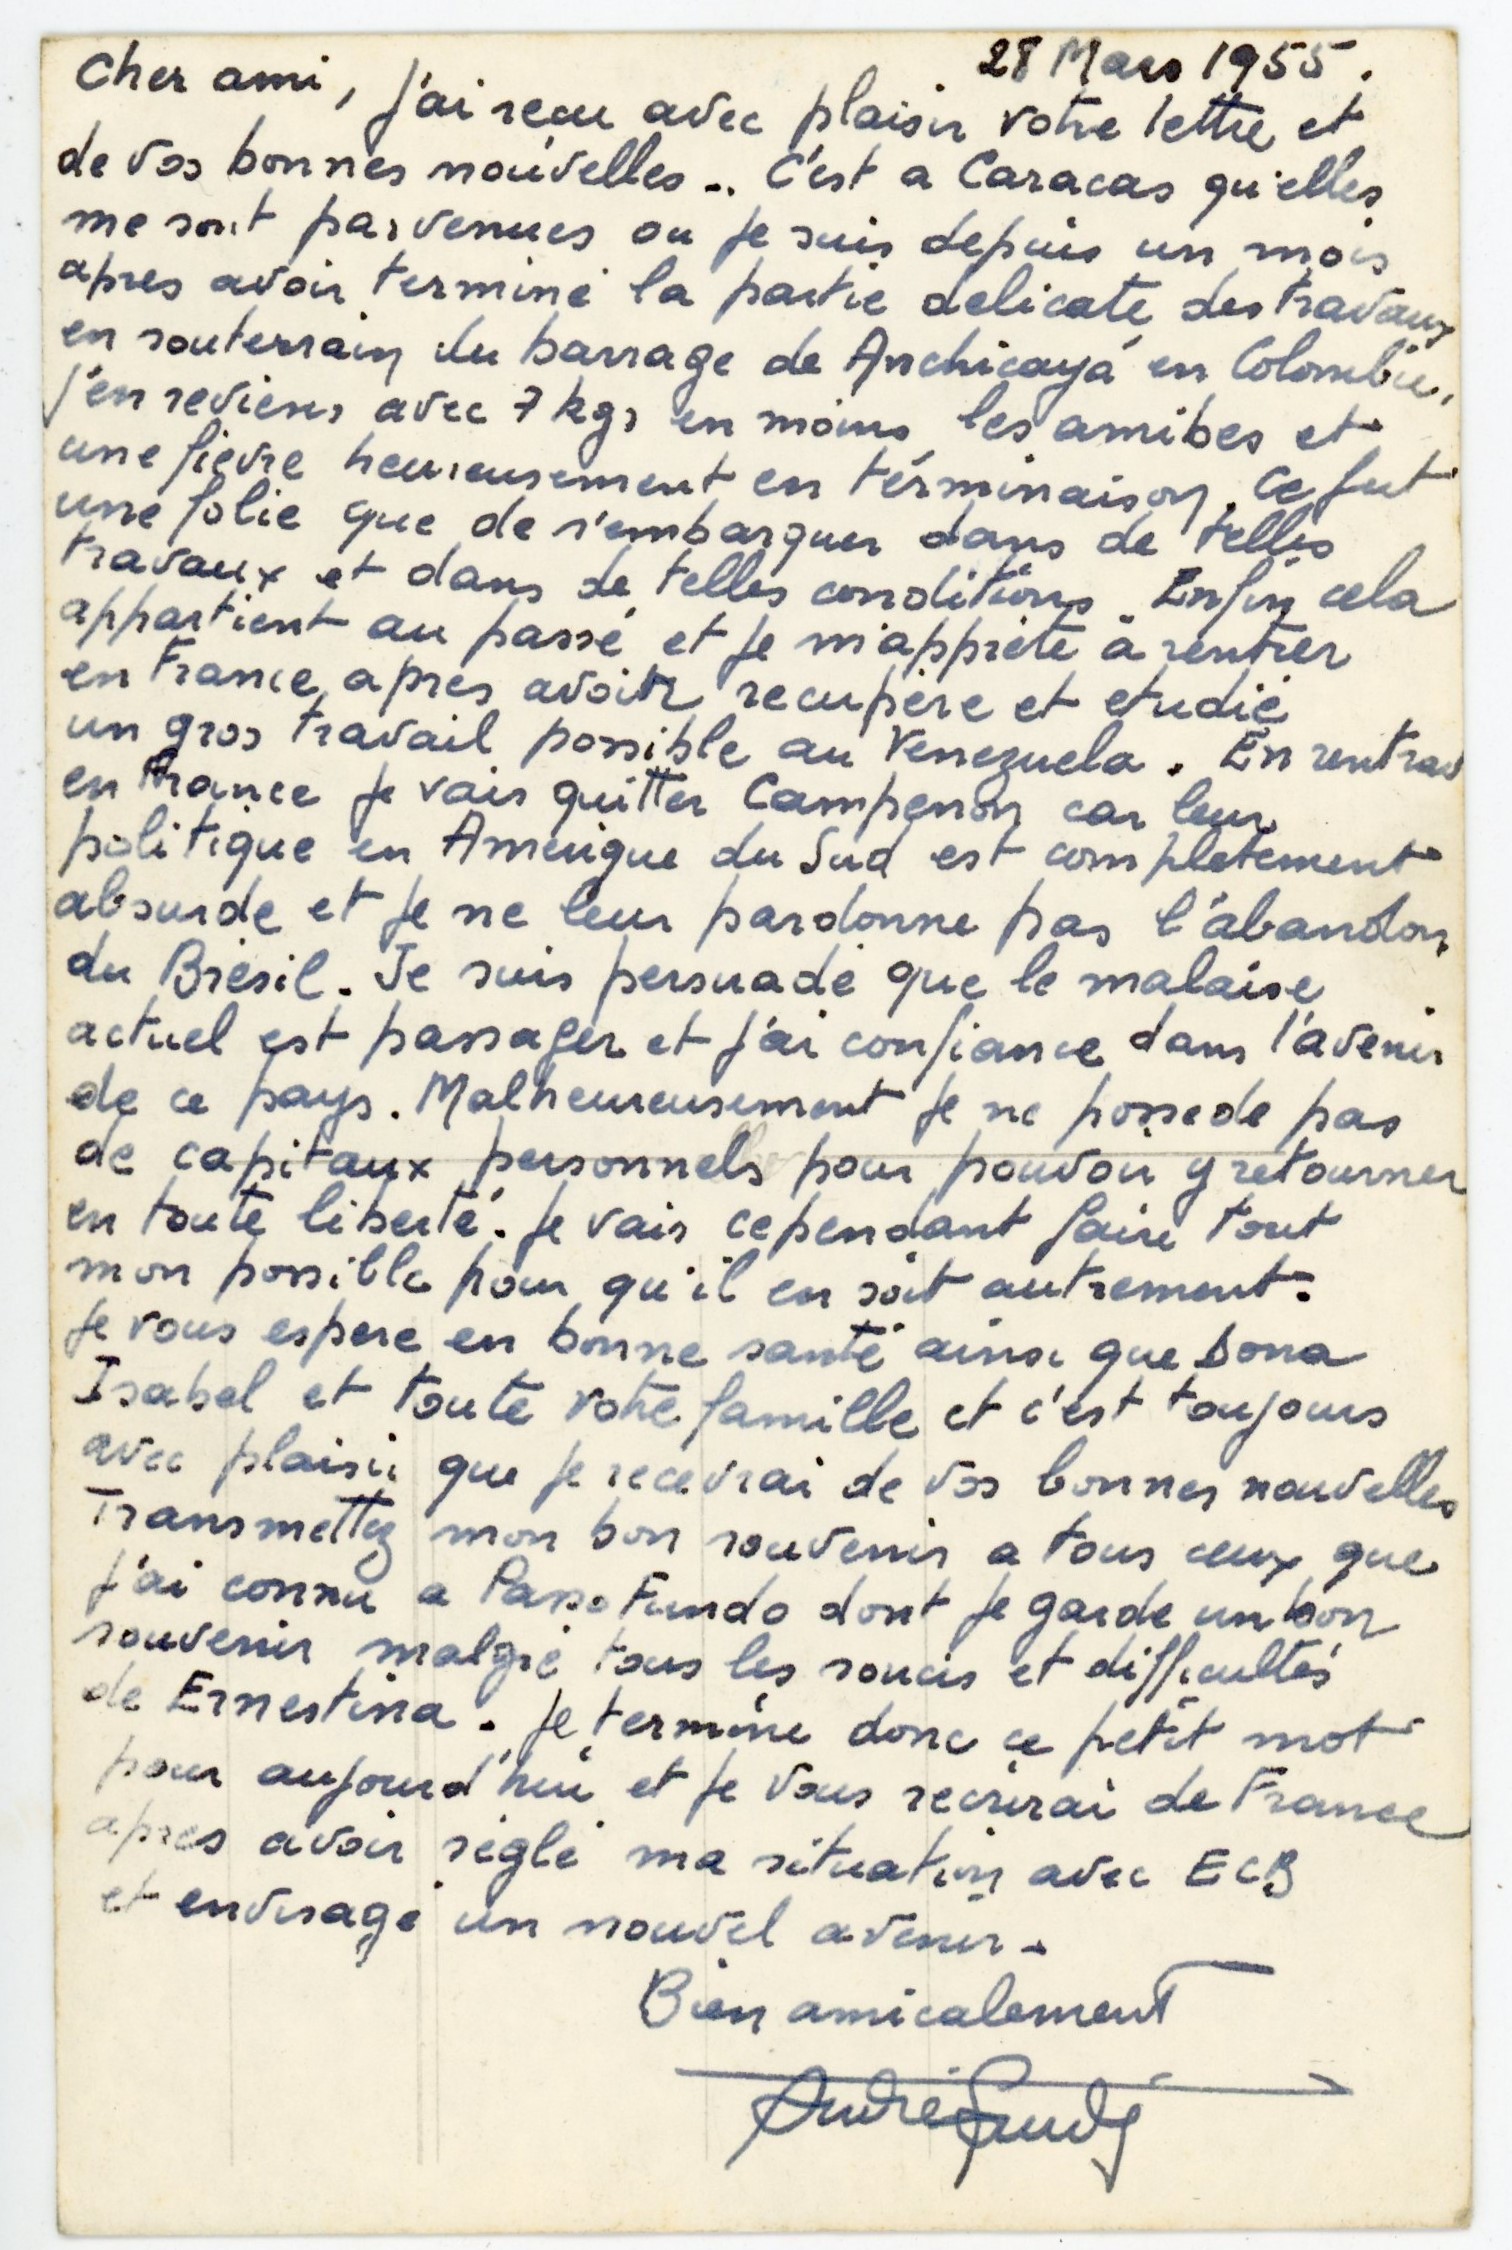 28 Mars 1955.
Cher ami, j'ai recu avec plaisir votre lettre et
de vos bonnes nouvelles.. C'est a Caracas qu'elles
me sont parvenues ou je suis depuis un mois
apres avoir terminé la partie delicate des travaux
en souterrain du barrage de Anchicaya en Colombie,
j'en reviens avec 7 kgs en moins les amibes et
une fièvre heureusement en términaison. Ce fut
une folie que de s'embarquer dans de telles
travaux et dans de telles conditions. Enfin cela
appartient au passé et je m'appréte à rentrer
en France, apres avoir recupéré et etudié
un gros travail possible au Venezuela. En rentrant
en France je vais quitter Campenon car leur
politique en Amerique du Sud est completement
absurde et je ne leur pardonne pas l'abandon
du Brésil. Je suis persuadé que le malaise
actuel est passager et j'ai confiance dans l'avenir
de ce pays. Malheureusement je ne possede pas
de capitaux personnels pour pouvoir y retourner
en toute liberté. Je vais cependant faire tout
mon possible pour qu'il en soit autrement.
Je vous espere en bonne santé ainsi que Dona
Isabel et toute votre famille et c'est toujours
avec plaisir que je recevrai de vos bonnes nouvelles
Transmettez mon bon souvenir a tous ceux que
j'ai connu a Passo Fundo dont je garde un bon
souvenir malgré tous les soucis et difficultés
de Ernestina. Je termine donc ce petit mot
pour aujourd'hui et je vous recrirai de France
apres avoir réglé ma situation avec ECB
et envisagé un nouvel avenir.
Bien amicalement
André